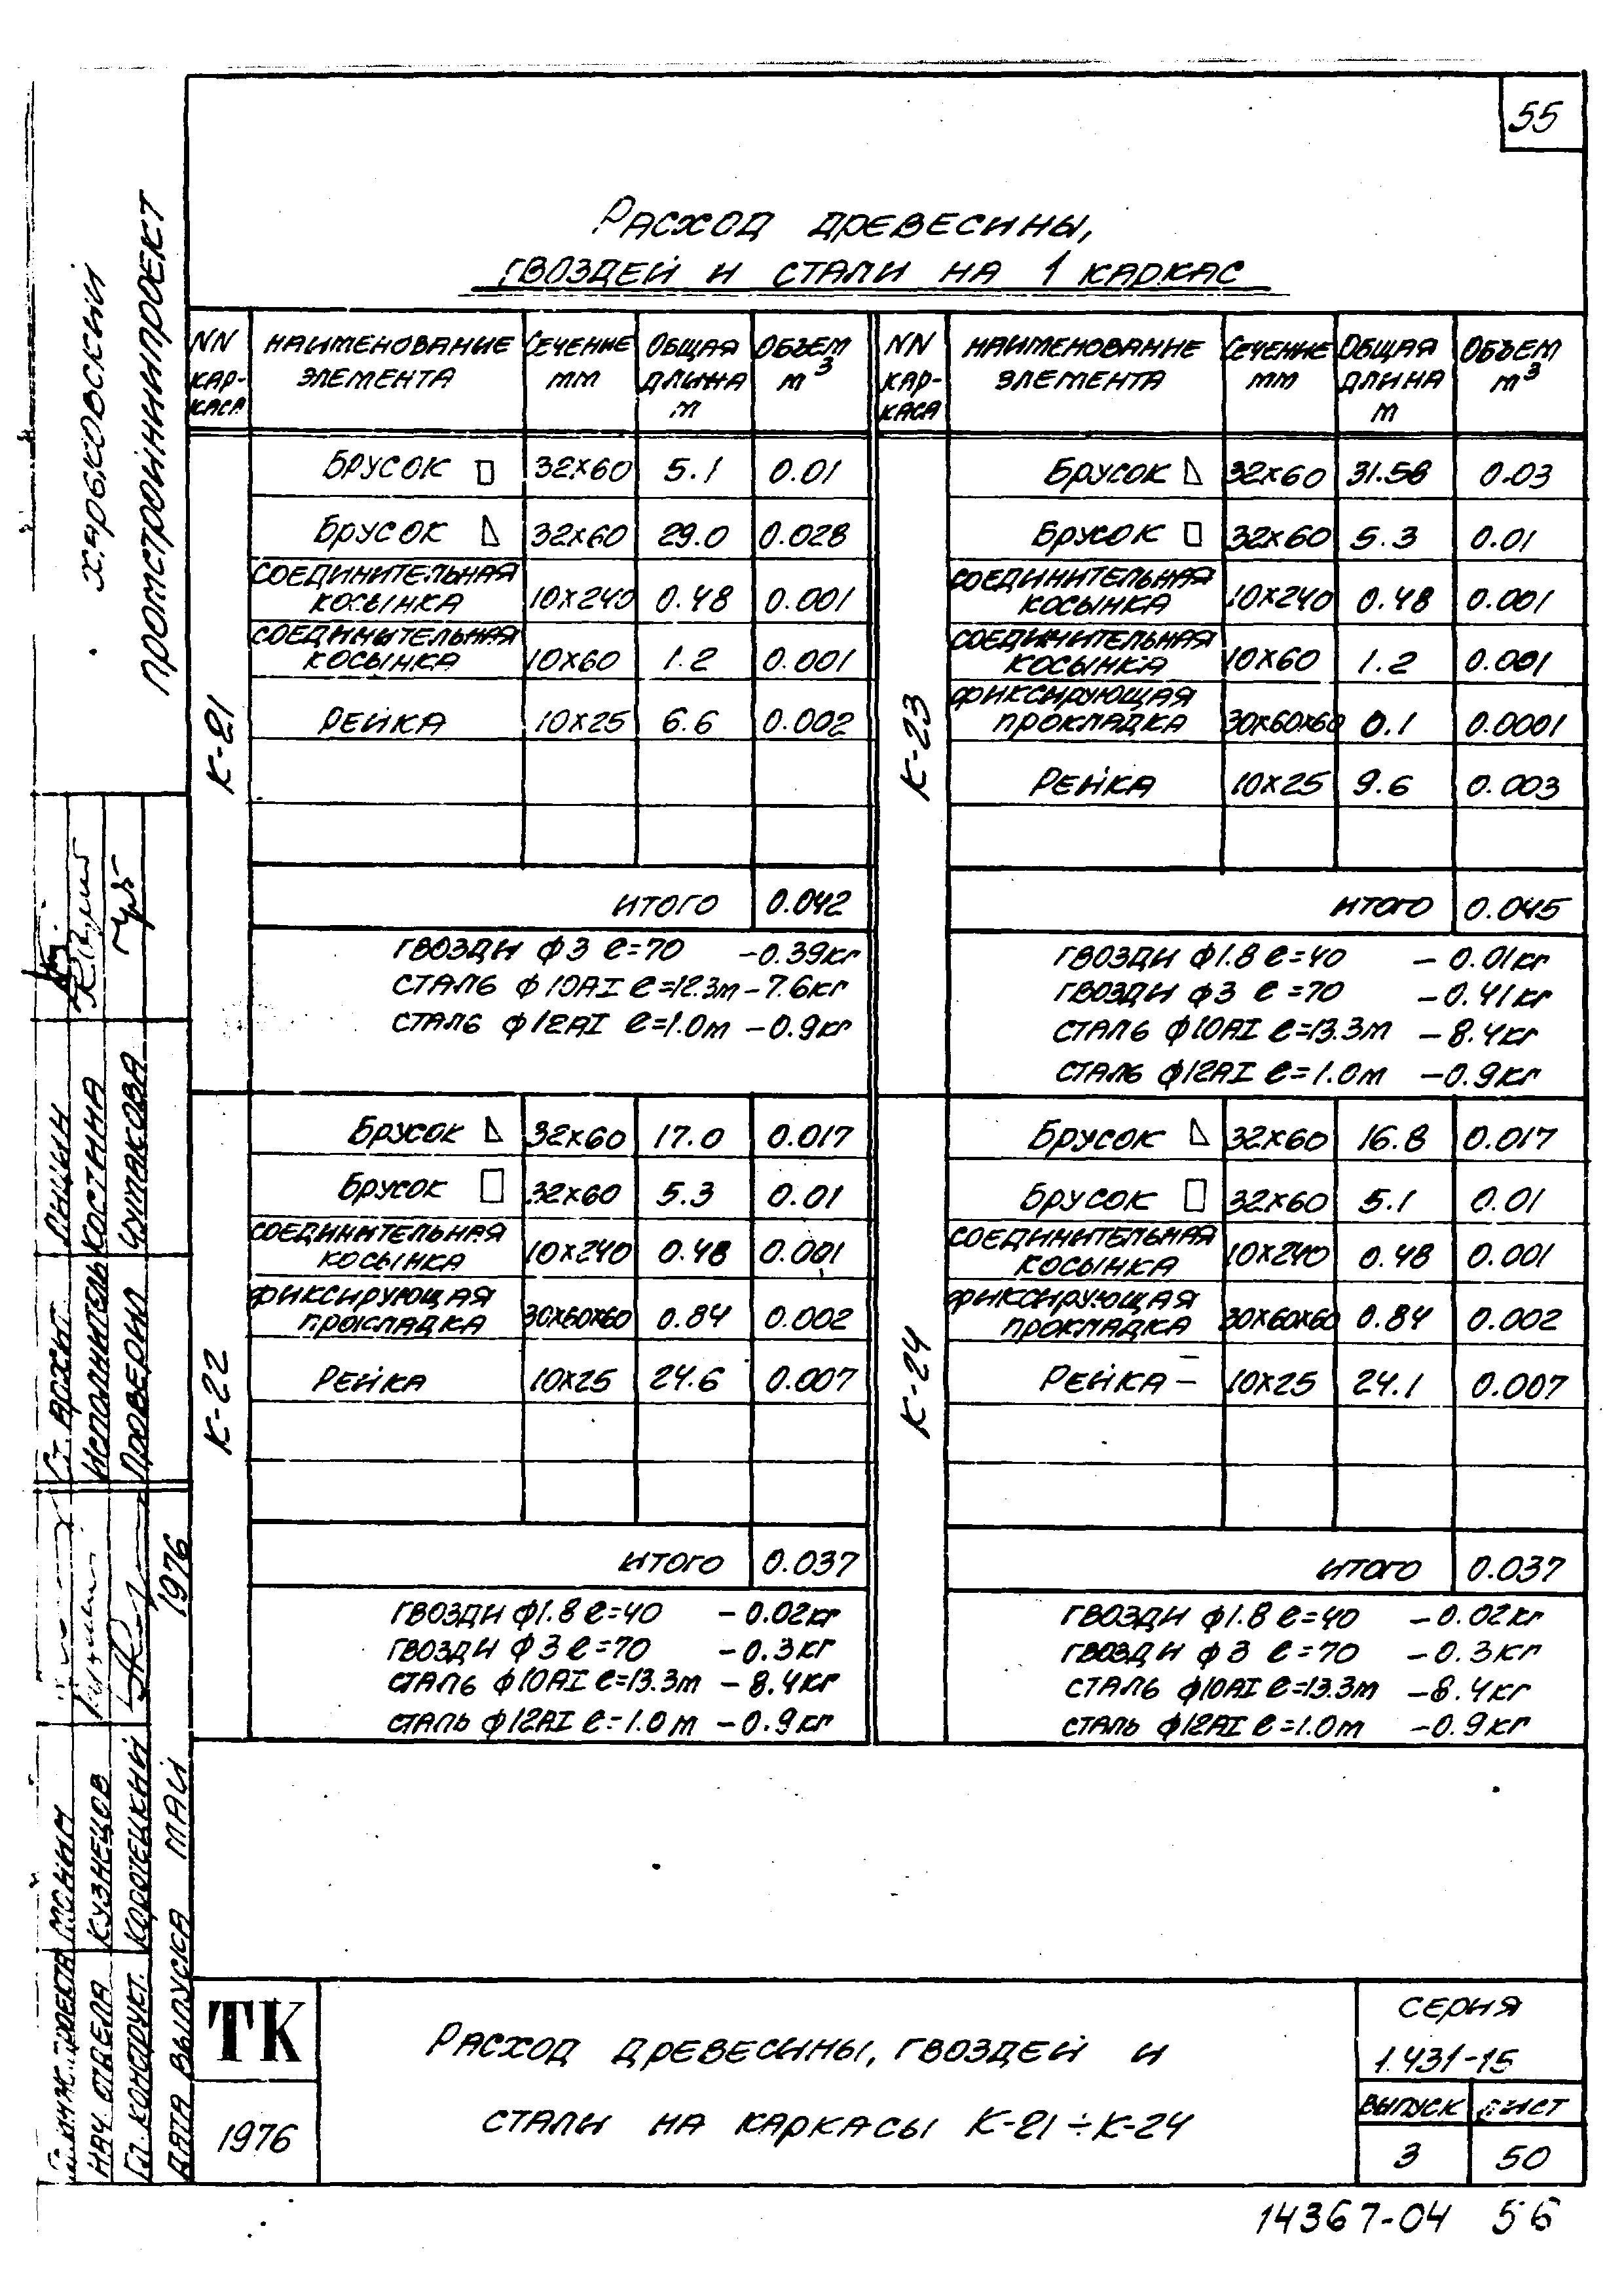 55
Расход древесины,
гвоздей и стали на 1 каркас
NN каркаса | Наименование элемента | Сечение мм | Общая длина м | Объем м³
К-21
Брусок ▯ 32х60 5.1 0.01
Брусок 32х60 29.0 0.028
Соединительная косынка 10х240 0.48 0.001
Соединительная косынка 10х60 1.2 0.001
Рейка 10х25 6.6 0.002
Итого 0.042
Гвозди ф3 l=70 -0.39кг
Сталь ф10АI l=12.3м -7.6кг
Сталь ф12АI l=1.0м -0.9кг
К-22
Брусок 32х60 17.0 0.017
Брусок ▯ 32х60 5.3 0.01
Соединительная косынка 10х240 0.48 0.001
Фиксирующая прокладка 30х60х60 0.84 0.002
Рейка 10х25 24.6 0.007
Итого 0.037
Гвозди ф1.8 l=40 -0.02кг
Гвозди ф3 l=70 -0.3кг
Сталь ф10АI l=13.3м -8.4кг
Сталь ф12АI l=1.0м -0.9кг
NN каркаса | Наименование элемента | Сечение мм | Общая длина м | Объем м³
К-23
Брусок 32х60 31.58 0.03
Брусок ▯ 32х60 5.3 0.01
Соединительная косынка 10х240 0.48 0.001
Соединительная косынка 10х60 1.2 0.001
Фиксирующая прокладка 30х60х60 0.1 0.0001
Рейка 10х25 9.6 0.003
Итого 0.045
Гвозди ф1.8 l=40 -0.01кг
Гвозди ф3 l=70 -0.41кг
Сталь ф10АI l=13.3м -8.4кг
Сталь ф12АI l=1.0м -0.9кг
К-24
Брусок 32х60 16.8 0.017
Брусок ▯ 32х60 5.1 0.01
Соединительная косынка 10х240 0.48 0.001
Фиксирующая прокладка 30х60х60 0.84 0.002
Рейка 10х25 24.1 0.007
Итого 0.037
Гвозди ф1.8 l=40 -0.02кг
Гвозди ф3 l=70 -0.3кг
Сталь ф10АI l=13.3м -8.4кг
Сталь ф12АI l=1.0м -0.9кг
Харьковский
Промстройниипроект
Ст. архит.
Исполнитель Костина
Проверил Чумакова
Инж. проекта Монин
Нач отдела Кузнецов
Гл. конструкт. Коротецкий
Дата выпуска май 1976
ТК
1976
Расход древесины, гвоздей и
стали на каркасы К-21÷К-24
Серия
1.431-15
Выпуск Лист
3 50
14367-04 56